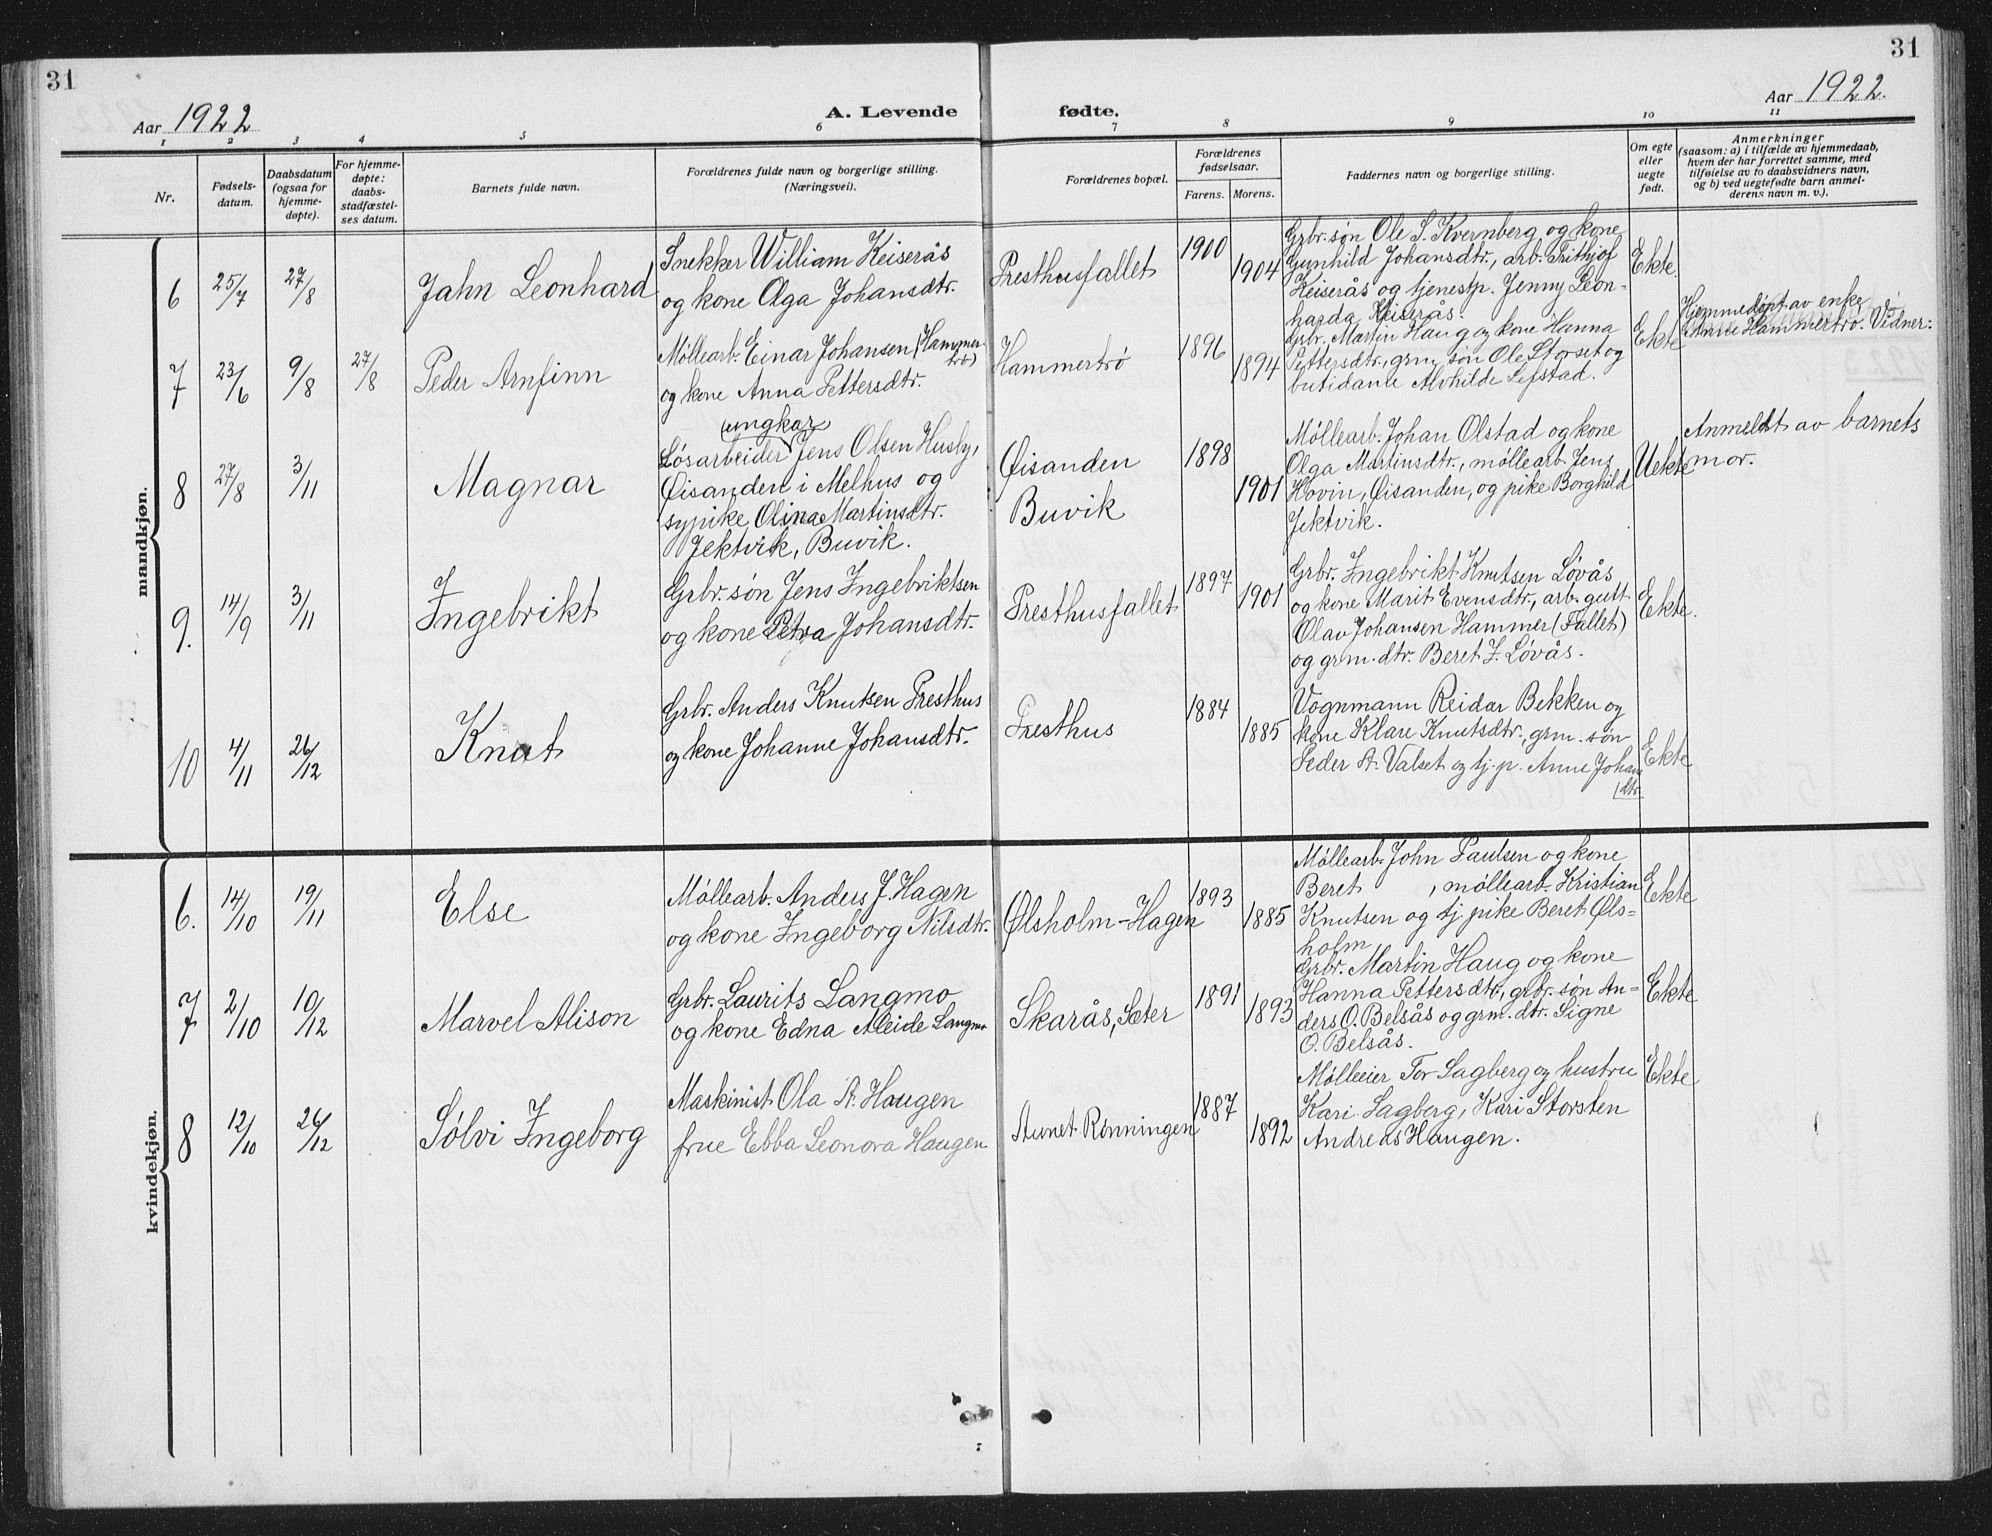 31
31
Aar 1922
A. Levende fødte.
Aar 1922.
1 2 3 4 5 6 7 8 9 10 11
Nr.
Fødsels-
datum.
Daabsdatum
(ogsaa for
hjemme-
døpte).
For hjemme-
døpte:
daabs-
stadfæstel-
ses datum.
Barnets fulde navn.
Forældrenes fulde navn og borgerlige stilling.
(Næringsvei).
Forældrenes bopæl.
Forældrenes
fødselsaar.
Farens. Morens.
Faddernes navn og borgerlige stilling.
Om egte
eller
uegte
født.
Anmerkninger
(saasom: a) i tilfælde av hjemmedaab,
hvem der har forrettet samme, med
tilføielse av to daabsvidners navn,
og b) ved uegtefødte barn anmel-
derens navn m. v.).
mandkjøn.
6
25/7
27/8
Jahn Leonhard
Snekker William Keiserås
og kone Olga Johansdtr.
Presthusfallet
1900
1904
Grbr. søn Ole S. Kvernberg og kone
Gunhild Johansdtr., arb. Frithjof
Keiserås og tjenestp. Jenny Leon-
harda Keiserås.
Ekte.
7
23/6
9/8
27/8
Peder Arnfinn
Møllearb. Einar Johansen (Hammer-
trø)
og kone Anna Pettersdtr.
Hammertrø
1896
1894
Grbr. Martin Haug og kone Hanna
Pettersdtr., grm. søn Ole Storset og
butidame Alvhilde Lefstad.
Ekte
Hjemmedøpt av enke
Hammertrø. Vidner:
8
27/8
3/11
Magnar
ungkar
Løsarbeider Jens Olsen Husby,
Øisanden i Melhus og
sypike Olina Martinsdtr.
Jektvik, Buvik.
Øisanden
Buvik
1898
1901
Møllearb. Johan Olstad og kone
Olga Martinsdtr., møllearb. Jens
Hovin, Øisanden, og pike Borghild
Jektvik.
Uekte
Anmeldt av barnets
mor.
9.
14/9
3/11
Ingebrikt
Grbr. søn Jens Ingebriktsen
og kone Petra Johansdtr.
Presthusfallet
1897
1901
Grbr. Ingebrikt Knutsen Løvås
og kone Marit Evensdtr., arb. gutt
Olav Johansen Hammer (Fallet)
og grm. dtr. Beret I. Løvås.
Ekte.
10
4/11
26/12
Knut
Grbr. Anders Knutsen Presthus
og kone Johanne Johansdtr.
Presthus
1884
1885
Vognmann Reidar Bekken og
kone Klare Knutsdtr., grm. søn
Peder A. Valset og tj. p. Anne Johans
dtr.
Ekte
kvindekjøn.
6.
14/10
19/11
Else
Møllearb. Anders J. Hagen
og kone Ingeborg Nilsdtr.
Ølsholm-Hagen
1893
1885
Møllearb. John Paulsen og kone
Beret , møllearb. Kristian
Knutsen og tj. pike Beret Øls-
holm
Ekte
7
2/10
10/12
Marvel Alison
Grbr. Laurits Langmo
og kone Edna Aleide Langmo
Skarås, Sæter
1891
1893
Grbr. Martin Haug og kone
Hanna Pettersdtr., grbr. søn An-
ders O. Belsås og grm. dtr. Signe
O. Belsås.
Ekte
8
12/10
26/12
Sølvi Ingeborg
Maskinist Ola A. Haugen
frue Ebba Leonora Haugen
Aunet Rønningen
1887
1892
Mølleeier Tor Sagberg og hustru
Kari Sagberg, Kari Storsten
Andreas Haugen.
Ekte